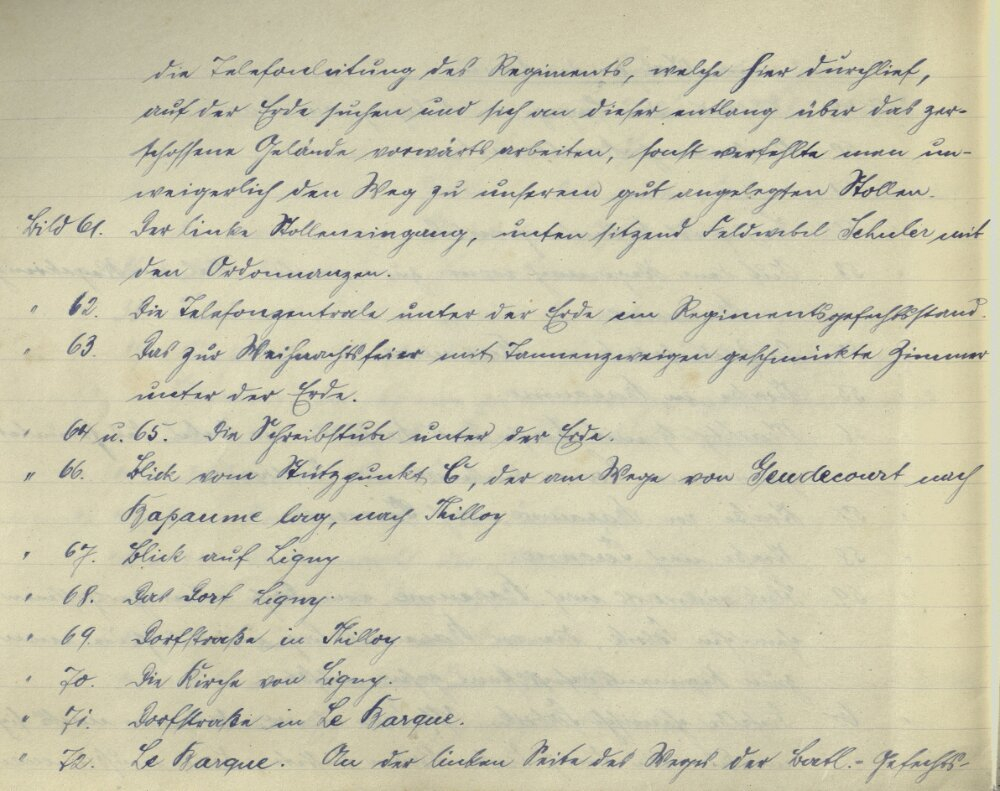 die Telefonleitung des Regiments, welche hier durchlief,
auf der Erde suchen und sich an dieser entlang über das zer-
schossene Gelände vorwärts arbeiten, sonst verfehlte man un-
weigerlich den Weg zu unserem gut angelegten Stollen.
Bild 61. Der linke Stolleneingang, unten sitzend Feldwebel Schuler mit
den Ordonnanzen.
" 62. Die Telefonzentrale unter der Erde im Regimentsgefechtsstand.
" 63. Das zur Weihnachtsfeier mit Tannenzweigen geschmückte Zimmer
unter der Erde.
" 64 u. 65. Die Schreibstube unter der Erde.
" 66. Blick vom Stützpunkt C, der am Wege von Geudecourt nach
Bapaume lag, nach Thilloy
" 67. Blick auf Ligny
" 68. Das Dorf Ligny.
" 69. Dorfstraße in Thilloy
" 70. Die Kirche von Ligny.
" 71. Dorfstraße in Le Barque.
" 72. Le Barque. An der linken Seite des Weges der Batl.-Gefechts-